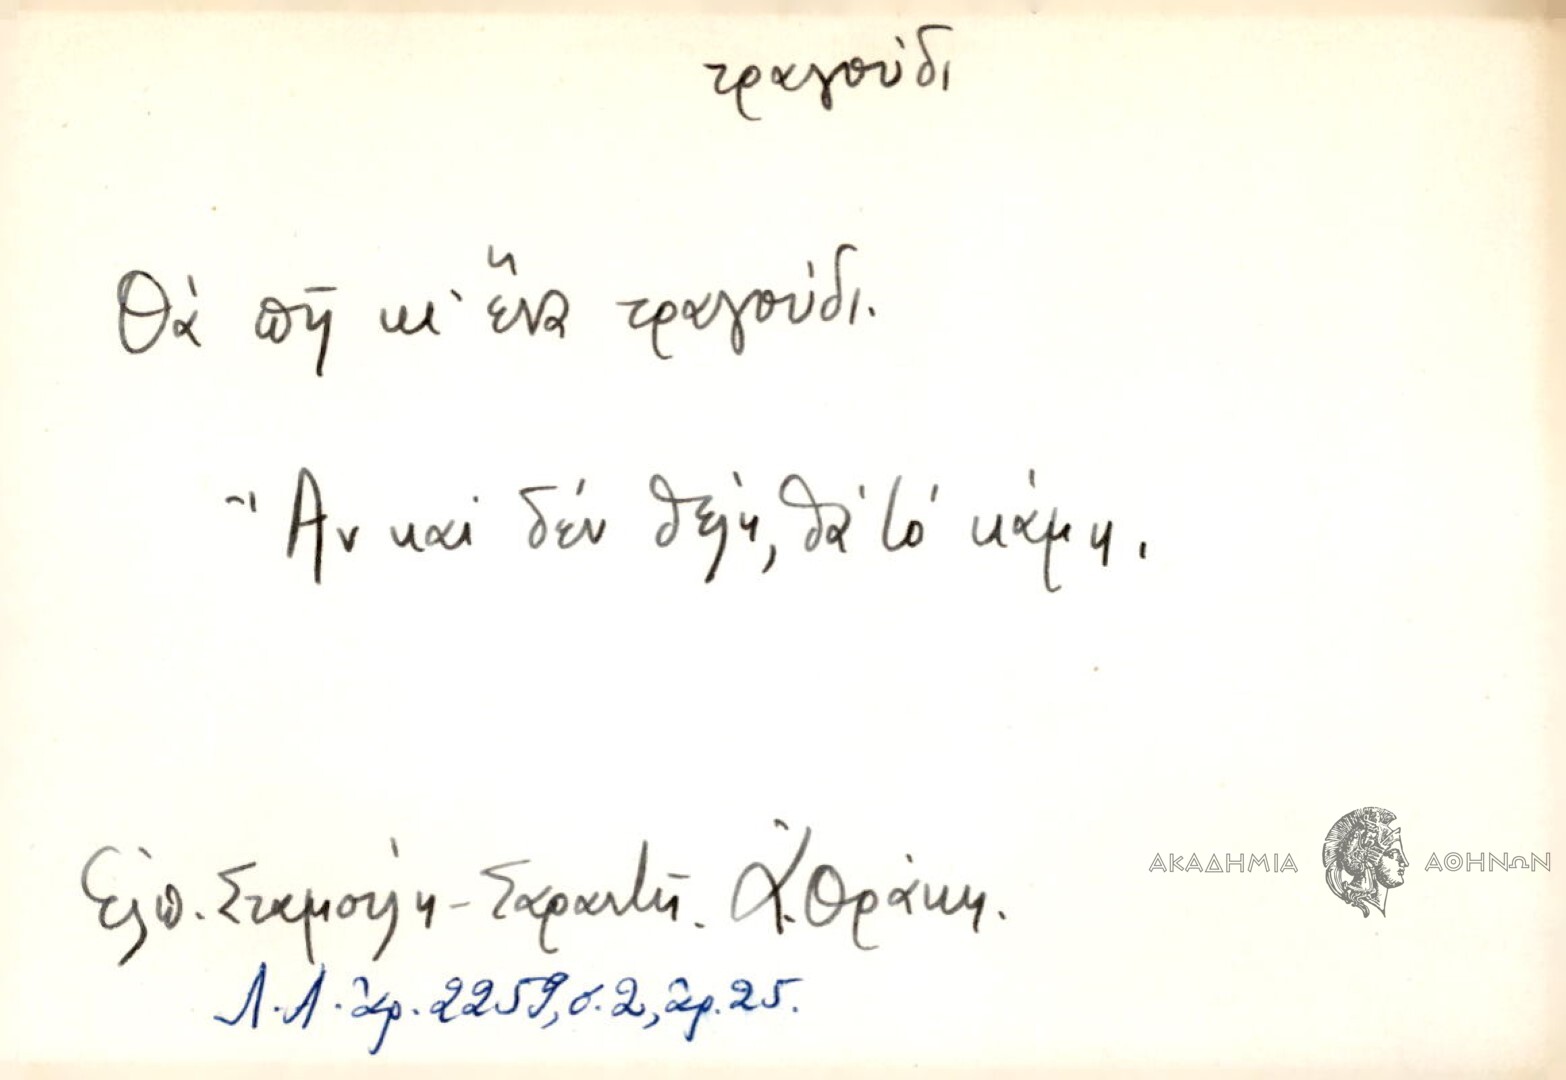 τραγούδι
Θὰ πῆ κι' ἕνα τραγούδι.
Ἂν καὶ δέν θέλη, θὰ τό κάμη.
Ἐλπ. Σταμούλη - Σαραντῆ. Ἀ. Θράκη.
Λ.Λ. ἀρ. 2259, σ. 2, ἀρ. 25.
ΑΚΑΔΗΜΙΑ ΑΘΗΝΩΝ